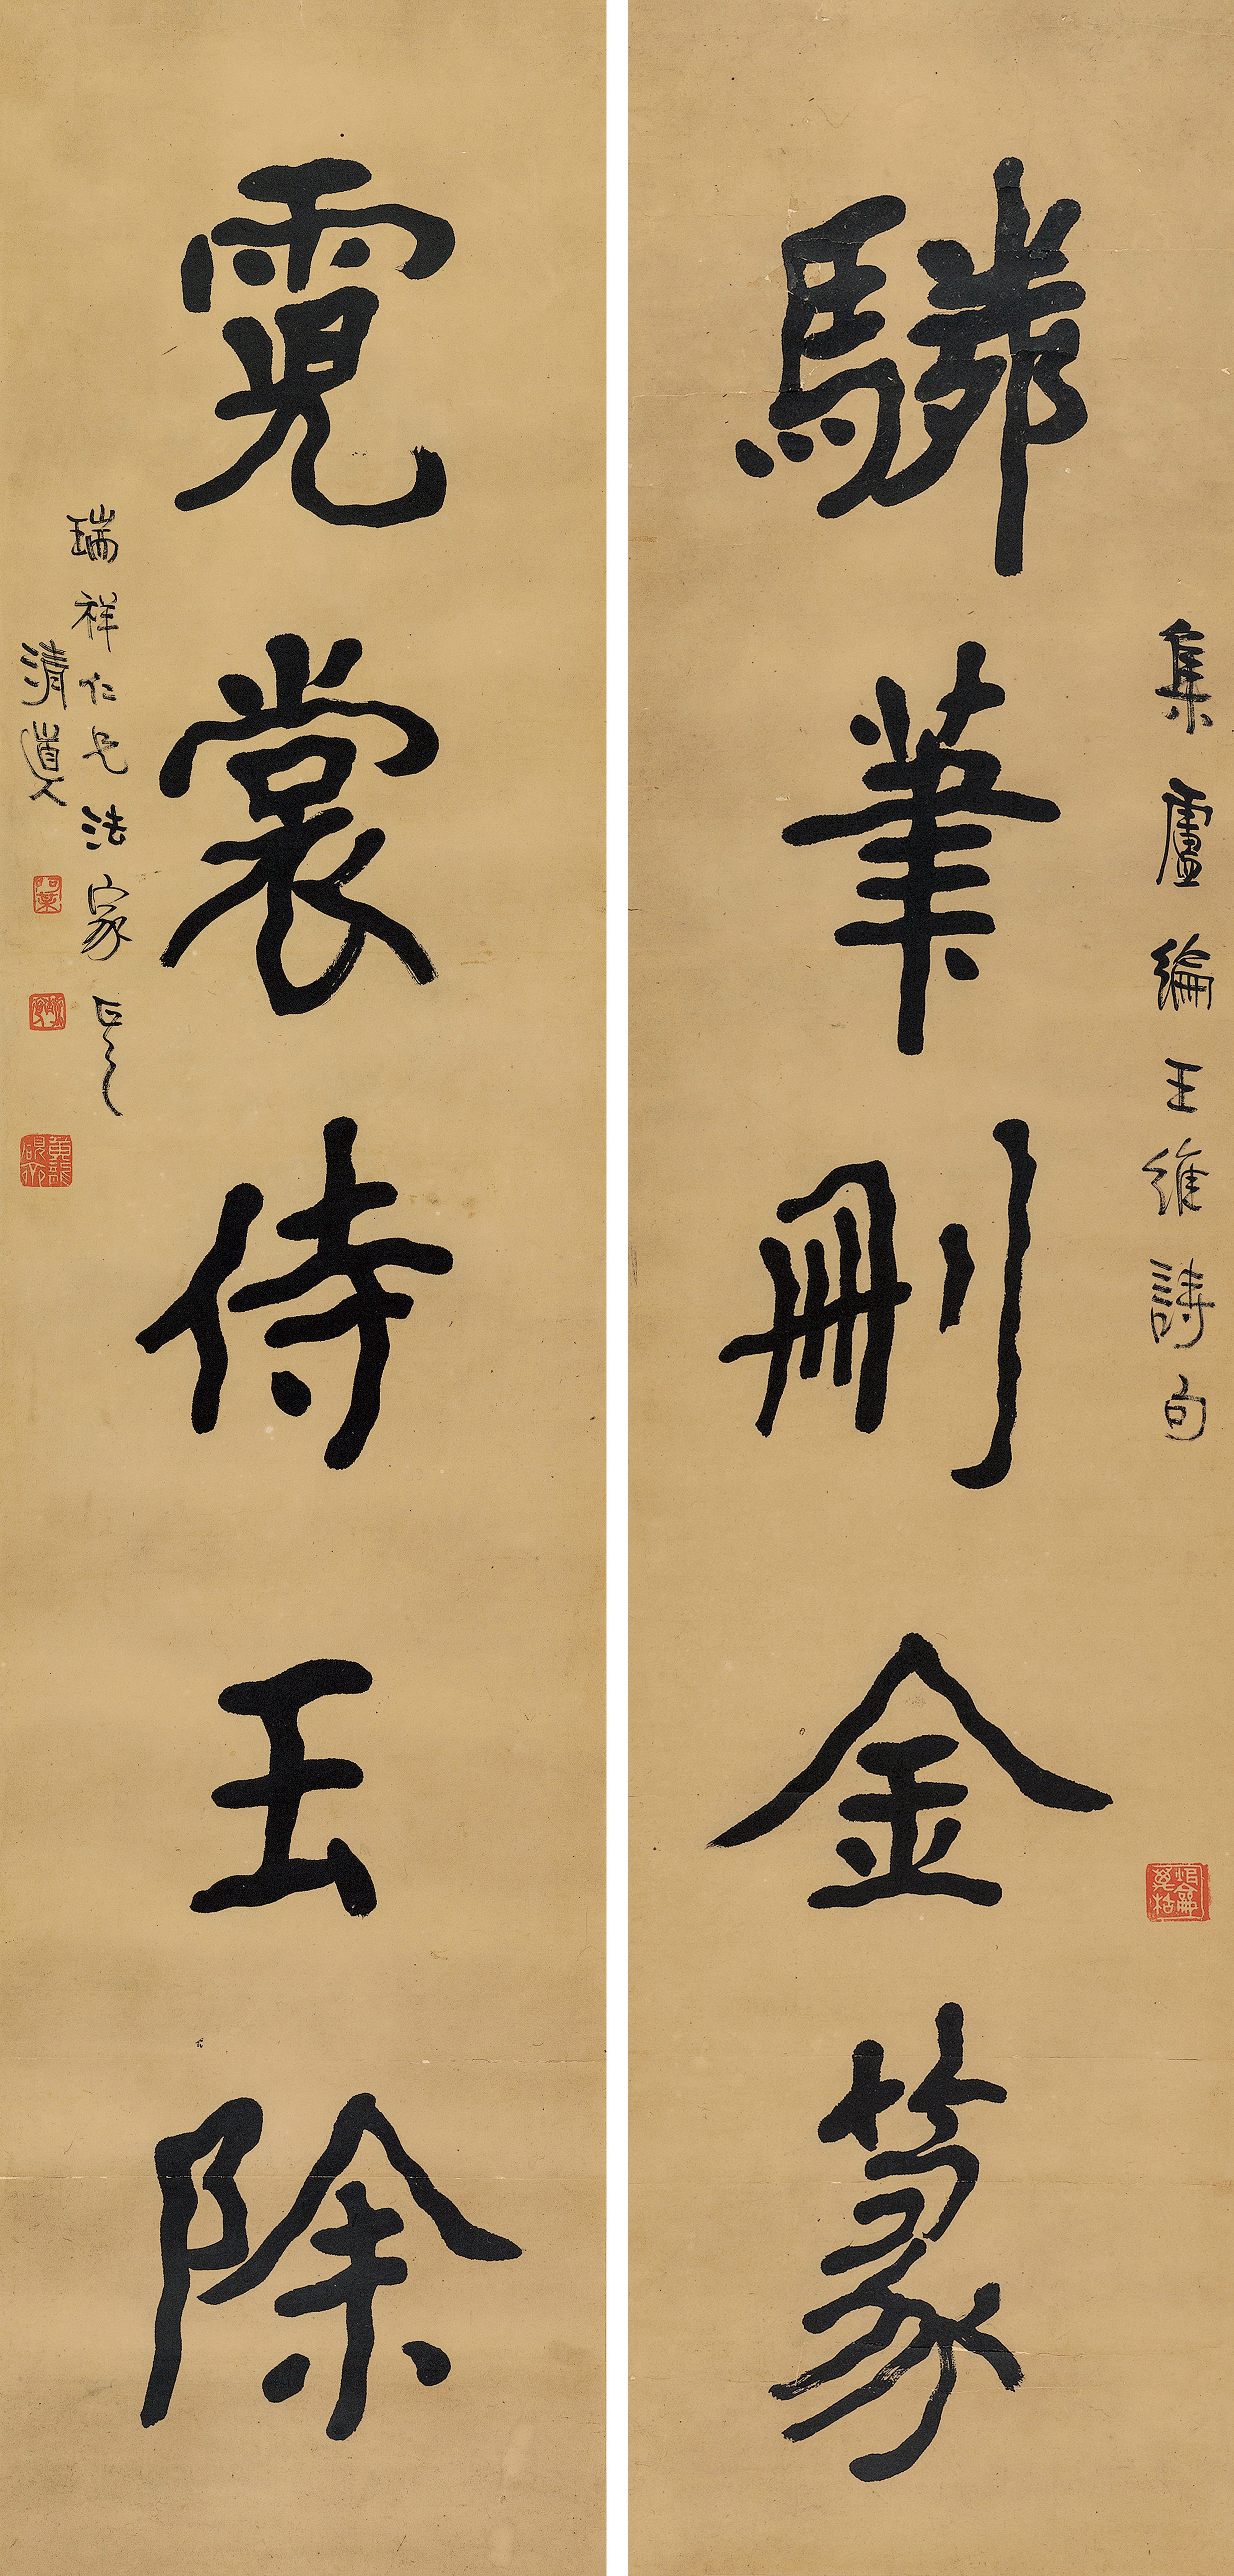 集盧綸王維詩句
驎筆刪金篆
霓裳侍玉除
瑞祥仁兄法家正之
清道人